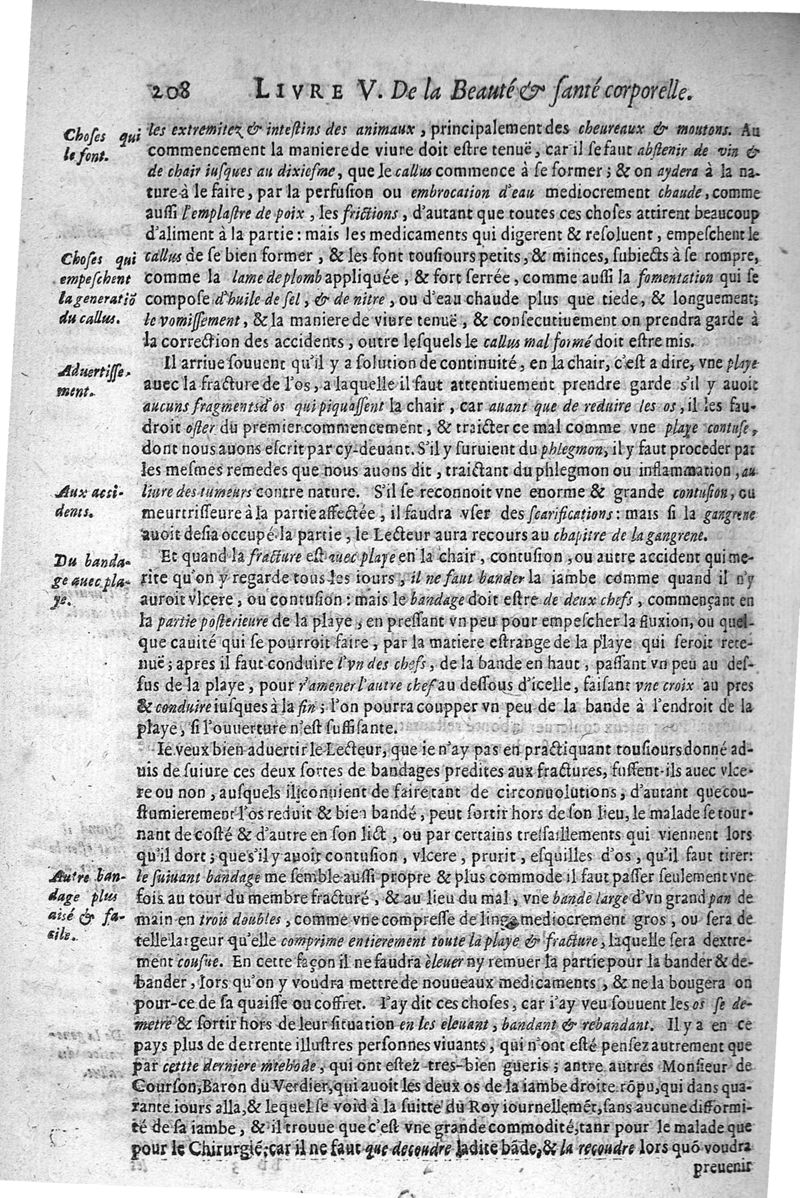 208 LIVRE V. De la Beauté & ſanté corporelle.
Choſes qui
le font.
les extremitez & inteſtins des animaux, principalement des cheureaux & moutons. Au
commencement la maniere de viure doit eſtre tenuë, car il ſe faut abſtenir de vin &
de chair iuſques au dixieſme, que le callus commence à ſe former; & on aydera à la na-
ture à le faire, par la perfuſion ou embrocation d'eau mediocrement chaude, comme
auſſi l'emplaſtre de poix, les frictions, d'autant que toutes ces choſes attirent beaucoup
d'aliment à la partie: mais les medicaments qui digerent & reſoluent, empeſchent le
Choſes qui
empeſchent
la generatiõ
du callus.
callus de ſe bien former, & les font touſiours petits, & minces, ſubiects à ſe rompre,
comme la lame de plomb appliquée, & fort ſerrée, comme auſſi la fomentation qui ſe
compoſe d'huile de ſel, & de nitre, ou d'eau chaude plus que tiede, & longuement;
le vomiſſement, & la maniere de viure tenuë, & conſecutiuement on prendra garde à
la correction des accidents, outre leſquels le callus mal formé doit eſtre mis.
Aduertiſſe-
ment.
Il arriue ſouuent qu'il y a ſolution de continuité, en la chair, c'eſt a dire, vne playe
auec la fracture de l'os, a laquelle il faut attentiuement prendre garde s'il y auoit
aucuns fragments d'os qui piquaſſent la chair, car auant que de reduire les os, il les fau-
droit oſter du premier commencement, & traicter ce mal comme vne playe contuſe,
dont nous auons eſcrit par cy-deuant. S'il y ſuruient du phlegmon, il y faut proceder par
les meſmes remedes que nous auons dit, traictant du phlegmon ou inflammation, au
Aux acci-
dents.
liure des tumeurs contre nature. S'il ſe reconnoit vne enorme & grande contuſion, ou
meurtriſſeure à la partie affectée, il faudra vſer des ſcarifications: mais ſi la gangrene
auoit deſia occupé la partie, le Lecteur aura recours au chapitre de la gangrene.
Du banda-
ge auec pla-
ye.
Et quand la fracture eſt auec playe en la chair, contuſion, ou autre accident qui me-
rite qu'on y regarde tous les iours, il ne faut bander la iambe comme quand il n'y
auroit vlcere, ou contuſion: mais le bandage doit eſtre de deux chefs, commençant en
la partie poſterieure de la playe, en preſſant vn peu pour empeſcher la fluxion, ou quel-
que cauité qui ſe pourroit faire, par la matiere eſtrange de la playe qui ſeroit rete-
nuë; apres il faut conduire l'vn des chefs, de la bande en haut, paſſant vn peu au deſ-
ſus de la playe, pour r'amener l'autre chef au deſſous d'icelle, faiſant vne croix au pres
& conduire iuſques à la fin; l'on pourra coupper vn peu de la bande à l'endroit de la
playe, ſi l'ouuerture n'eſt ſuffiſante.
Ie veux bien aduertir le Lecteur, que ie n'ay pas en practiquant touſiours donné ad-
uis de ſuiure ces deux ſortes de bandages predites aux fractures, fuſſent-ils auec vlce-
re ou non, auſquels il conuient de faire tant de circonuolutions, d'autant que cou-
ſtumierement l'os reduit & bien bandé, peut ſortir hors de ſon lieu, le malade ſe tour-
nant de coſté & d'autre en ſon lict, ou par certains treſſaillements qui viennent lors
qu'il dort; que s'il y auoit contuſion, vlcere, prurit, eſquilles d'os, qu'il faut tirer:
Autre ban-
dage plus
aisé & fa-
cile.
le ſuiuant bandage me ſemble auſſi propre & plus commode il faut paſſer ſeulement vne
fois au tour du membre fracturé, & au lieu du mal, vne bande large d'vn grand pan de
main en trois doubles, comme vne compreſſe de linge mediocrement gros, ou ſera de
telle largeur qu'elle comprime entierement toute la playe & fracture, laquelle ſera dextre-
ment couſue. En cette façon il ne faudra éleuer ny remuer la partie pour la bander & de-
bander, lors qu'on y voudra mettre de nouueaux medicaments, & ne la bougera on
pour-ce de ſa quaiſſe ou coffret. I'ay dit ces choſes, car i'ay veu ſouuent les os ſe de-
metre & ſortir hors de leur ſituation en les eleuant, bandant & rebandant. Il y a en ce
pays plus de de trente illuſtres perſonnes viuants, qui n'ont eſté penſez autrement que
par cette derniere metehode, qui ont eſtez tres-bien gueris; antre autres Monſieur de
Courſon, Baron du Verdier, qui auoit les deux os de la iambe droite rõpu, qui dans qua-
rante iours alla, & lequel ſe void à la ſuitte du Roy iournellemẽt, ſans aucune difformi-
té de ſa iambe, & il trouue que c'eſt vne grande commodité, tant pour le malade que
pour le Chirurgiẽ; car il ne faut que decoudre ladite bãde, & la recoudre lors quõ voudra
preuenir